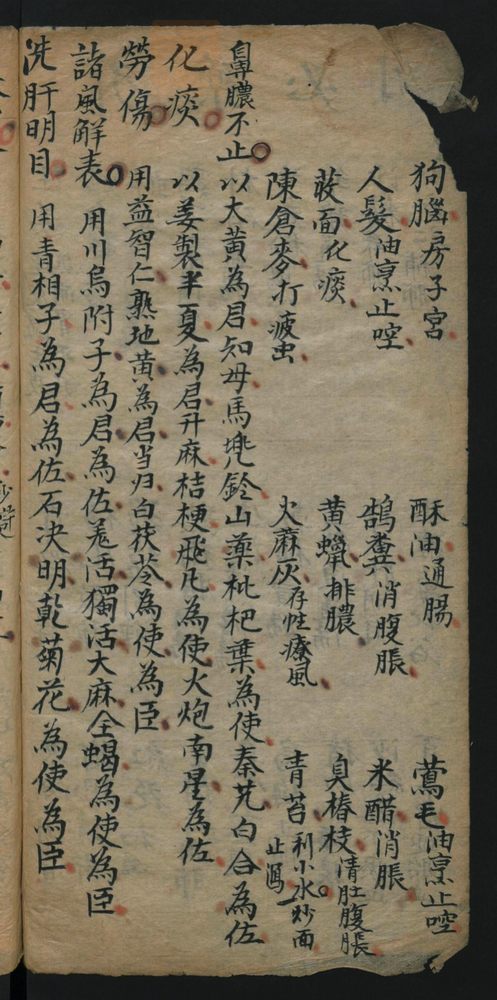 狗腦房子宮 酥油通腸 鶯毛油烹止啌
人髮油烹止啌 鵠糞消腹脹 米醋消脹
莜面化痰 黄蠟排膿 臭椿枝清肚腹脹
陳倉麥打疲虫 火麻灰存性療風 青苔利小水炒面止瀉
鼻膿不止 以大黄為君知母馬兠鈴山薬枇杷葉為使秦艽白合為佐
化痰 以姜製半夏為君升麻桔梗飛凡為使火炮南星為佐
勞傷 用益智仁熟地黄為君当归白茯苓為使為臣
諸風解表 用川烏附子為君為佐羌活獨活大麻全蝎為使為臣
洗肝明目 用青相子為君為佐石决明乾菊花為使為臣